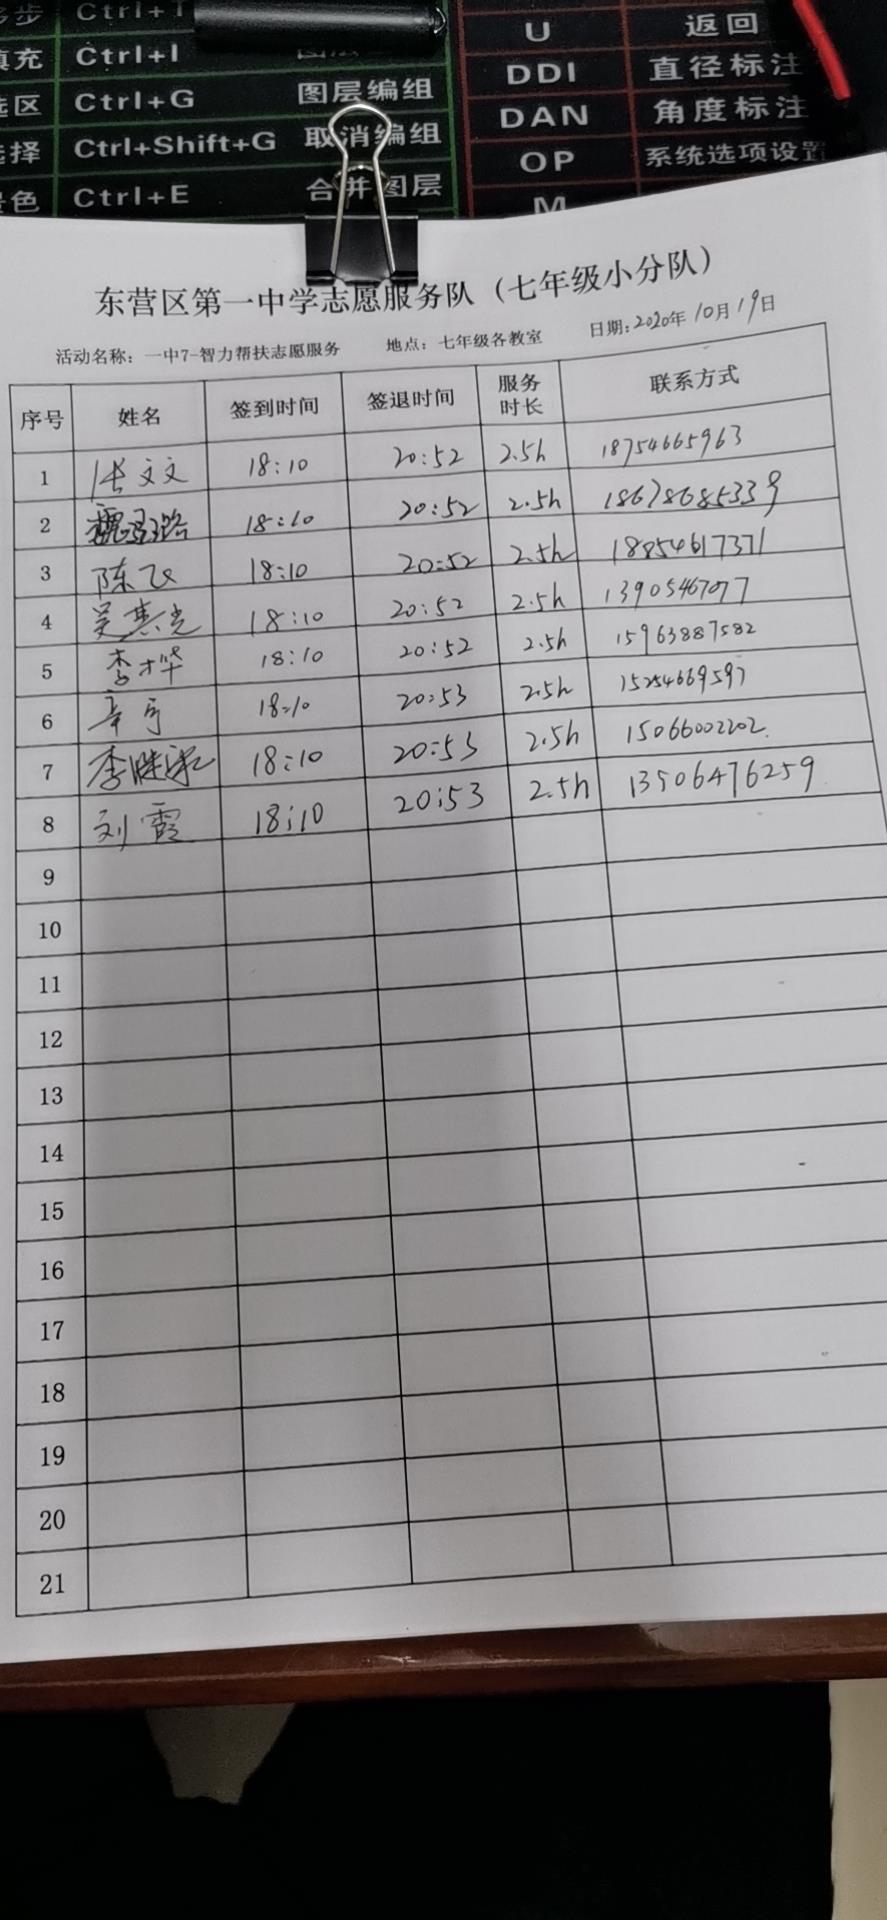 多步 Ctrl+T
填充 Ctrl+I
选区 Ctrl+G 图层编组
选择 Ctrl+Shift+G 取消编组
景色 Ctrl+E 合并图层
U 返回
DDI 直径标注
DAN 角度标注
OP 系统选项设置
M
东营区第一中学志愿服务队（七年级小分队）
活动名称：一中7-智力帮扶志愿服务 地点：七年级各教室 日期：2020年10月19日
序号 姓名 签到时间 签退时间 服务时长 联系方式
1 张文文 18:10 20:52 2.5h 18754665963
2 18:10 20:52 2.5h 18678685339
3 陈飞 18:10 20:52 2.5h 18854617371
4 吴其光 18:10 20:52 2.5h 13905467077
5 李桦 18:10 20:52 2.5h 15963887582
6 辛亨 18:10 20:53 2.5h 15254669597
7 18:10 20:53 2.5h 15066002202.
8 刘霞 18:10 20:53 2.5h 13506476259
9
10
11
12
13
14
15
16
17
18
19
20
21